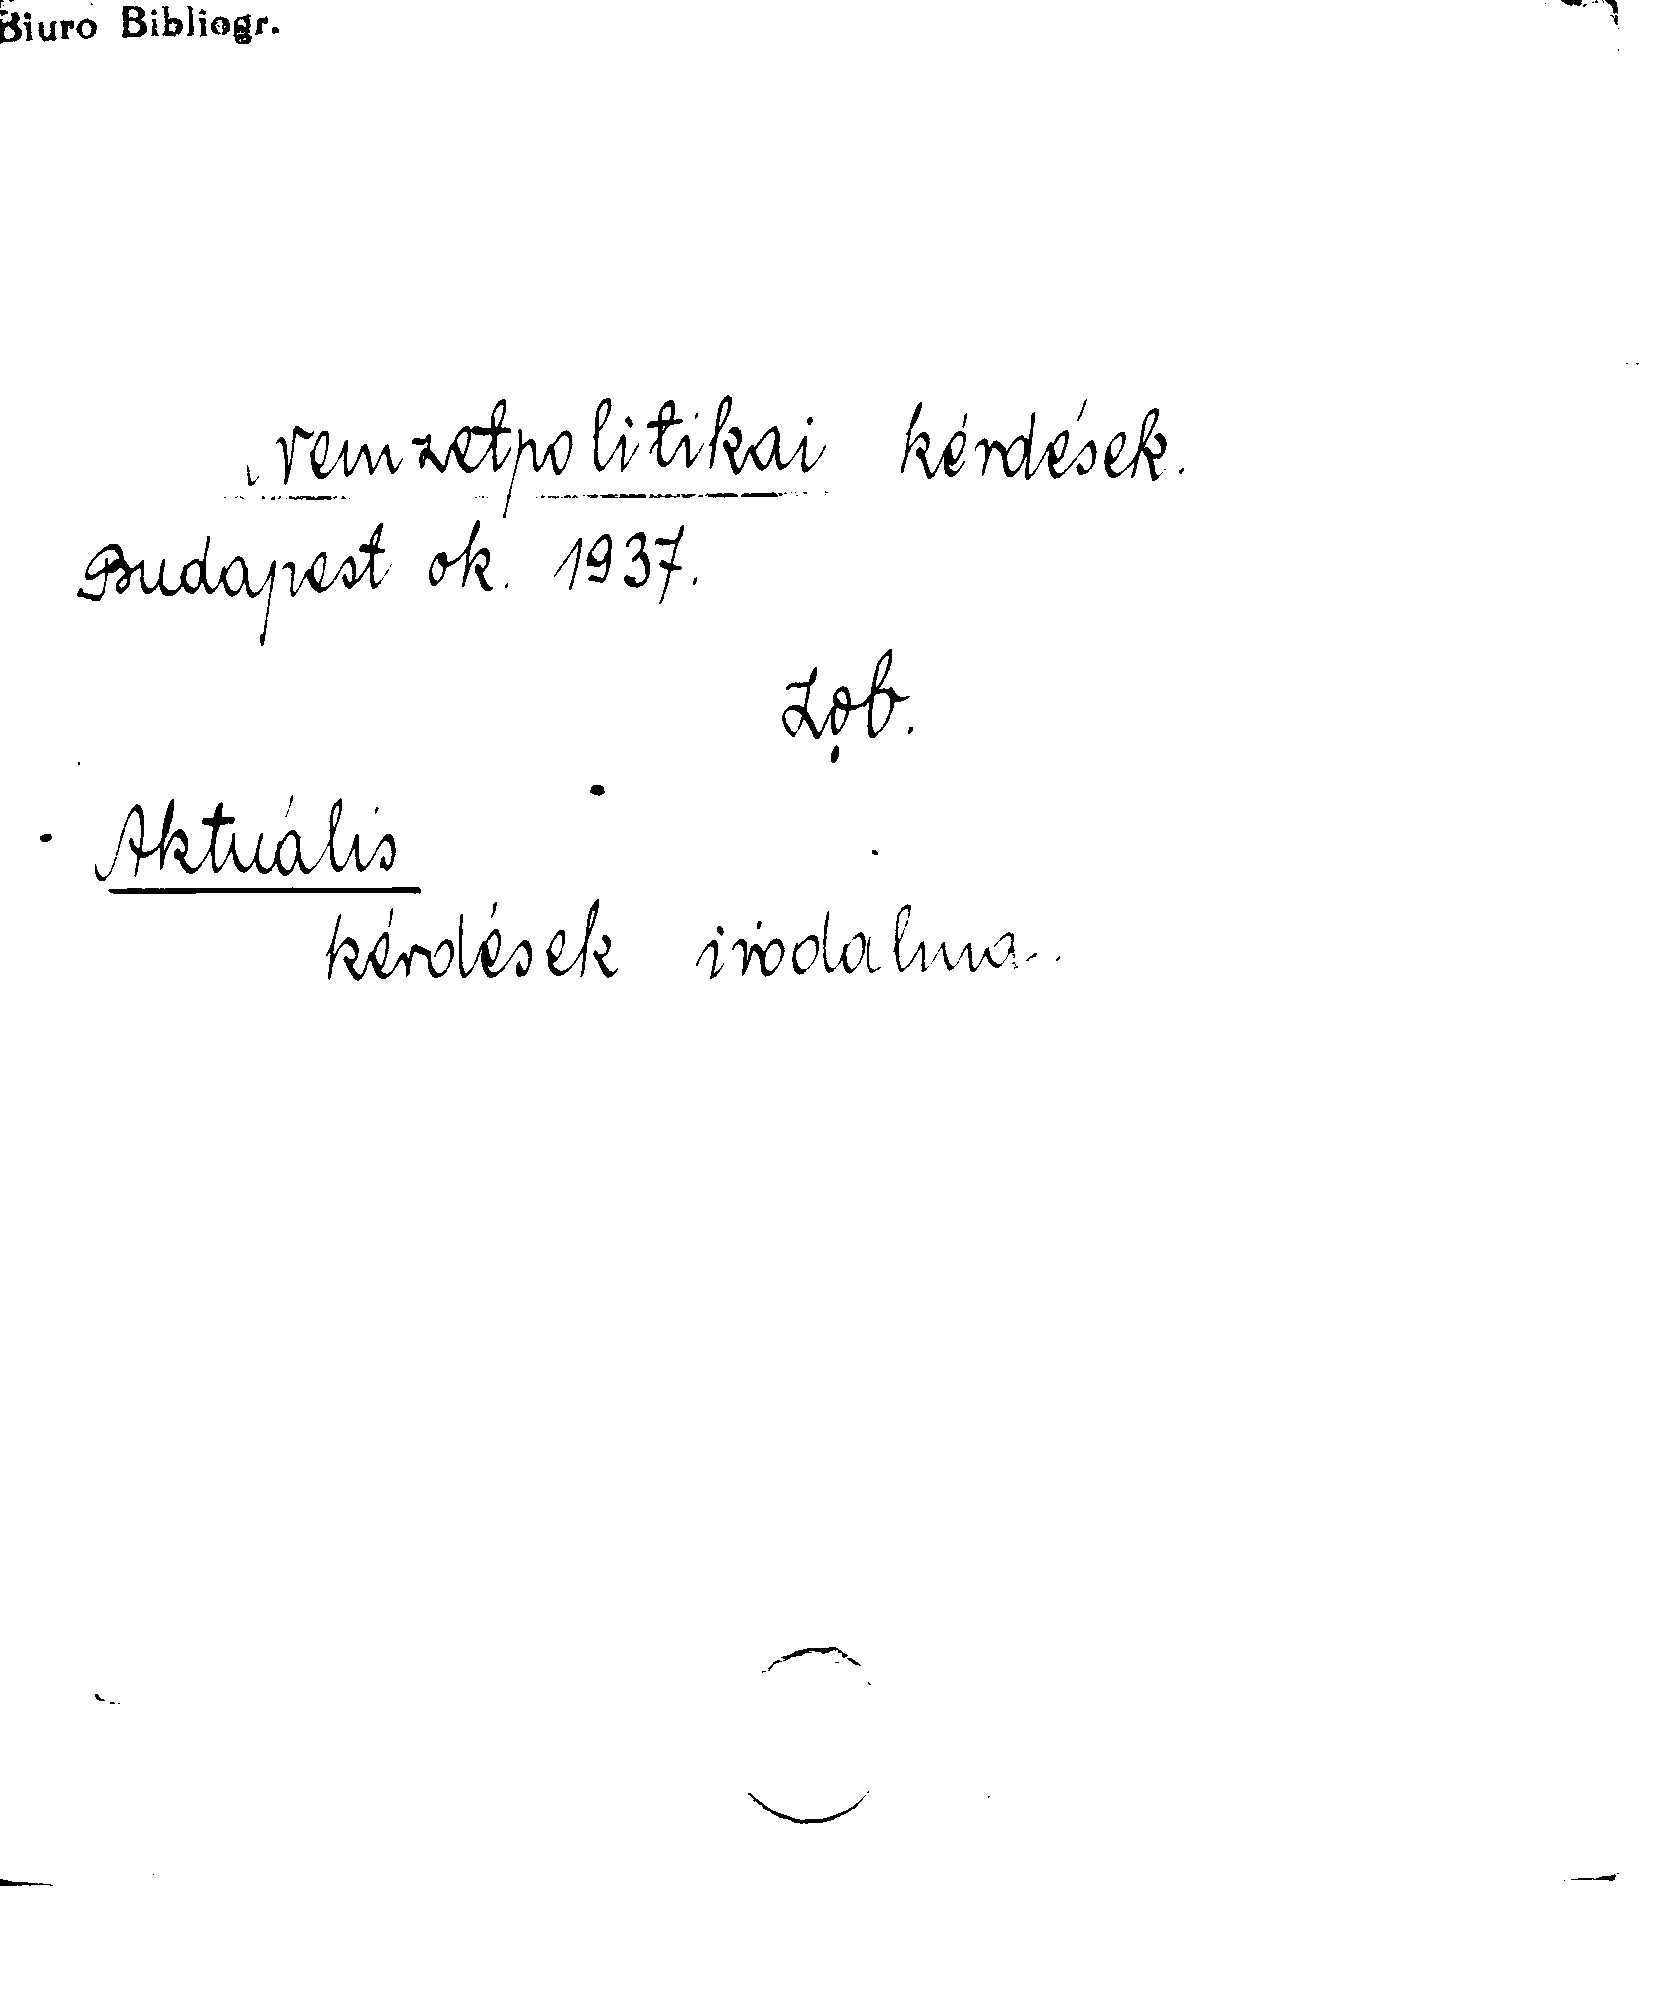 Biuro Bibliogr.
Nemzetpolitikai kérdések.
Budapest ok. 1937.
Zob.
Aktuális
kérdések irodalma.